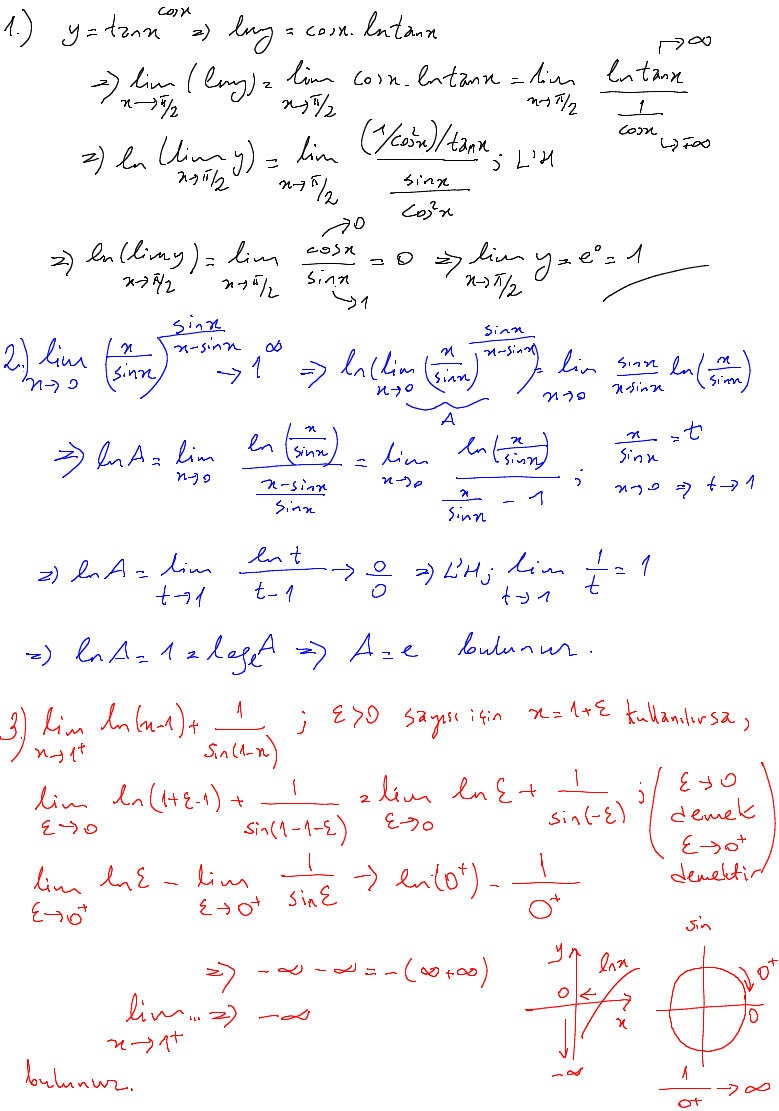 1.) y = tanx^cosx ⇒ lny = cosx. lntanx
⇒ lim x→π/2 (lny) = lim x→π/2 cosx. lntanx = lim x→π/2 lntanx →∞ / (1/cosx) →∓∞
⇒ ln (lim x→π/2 y) = lim x→π/2 (1/cos²x)/tanx / (sinx/cos²x) ; L'H
⇒ ln(lim y) x→π/2 = lim x→π/2 cosx →0 / sinx →1 = 0 ⇒ lim x→π/2 y = e⁰ = 1
2.) lim x→0 (x/sinx)^(sinx/(x-sinx)) → 1^∞ ⇒ ln(lim x→0 (x/sinx)^(sinx/(x-sinx))) = lim x→0 sinx/(x-sinx) ln(x/sinx)
A
⇒ lnA = lim x→0 ln(x/sinx) / ((x-sinx)/sinx) = lim x→0 ln(x/sinx) / (x/sinx - 1) ; x/sinx = t
x→0 ⇒ t→1
⇒ lnA = lim t→1 lnt/(t-1) → 0/0 ⇒ L'H; lim t→1 1/t = 1
⇒ lnA = 1 = logₑA ⇒ A = e bulunur.
3.) lim x→1⁺ ln(x-1) + 1/sin(1-x) ; ε>0 sayısı için x = 1+ε kullanılırsa,
lim ε→0 ln(1+ε-1) + 1/sin(1-1-ε) = lim ε→0 lnε + 1/sin(-ε) ; (ε→0 demek ε→0⁺ demektir)
lim ε→0⁺ lnε - lim ε→0⁺ 1/sinε → ln(0⁺) - 1/0⁺
⇒ -∞ -∞ = -(∞+∞)
lim x→1⁺ ... ⇒ -∞
bulunur.
y lnx 0 x -∞
sin 0⁺ 0
1/0⁺ → ∞